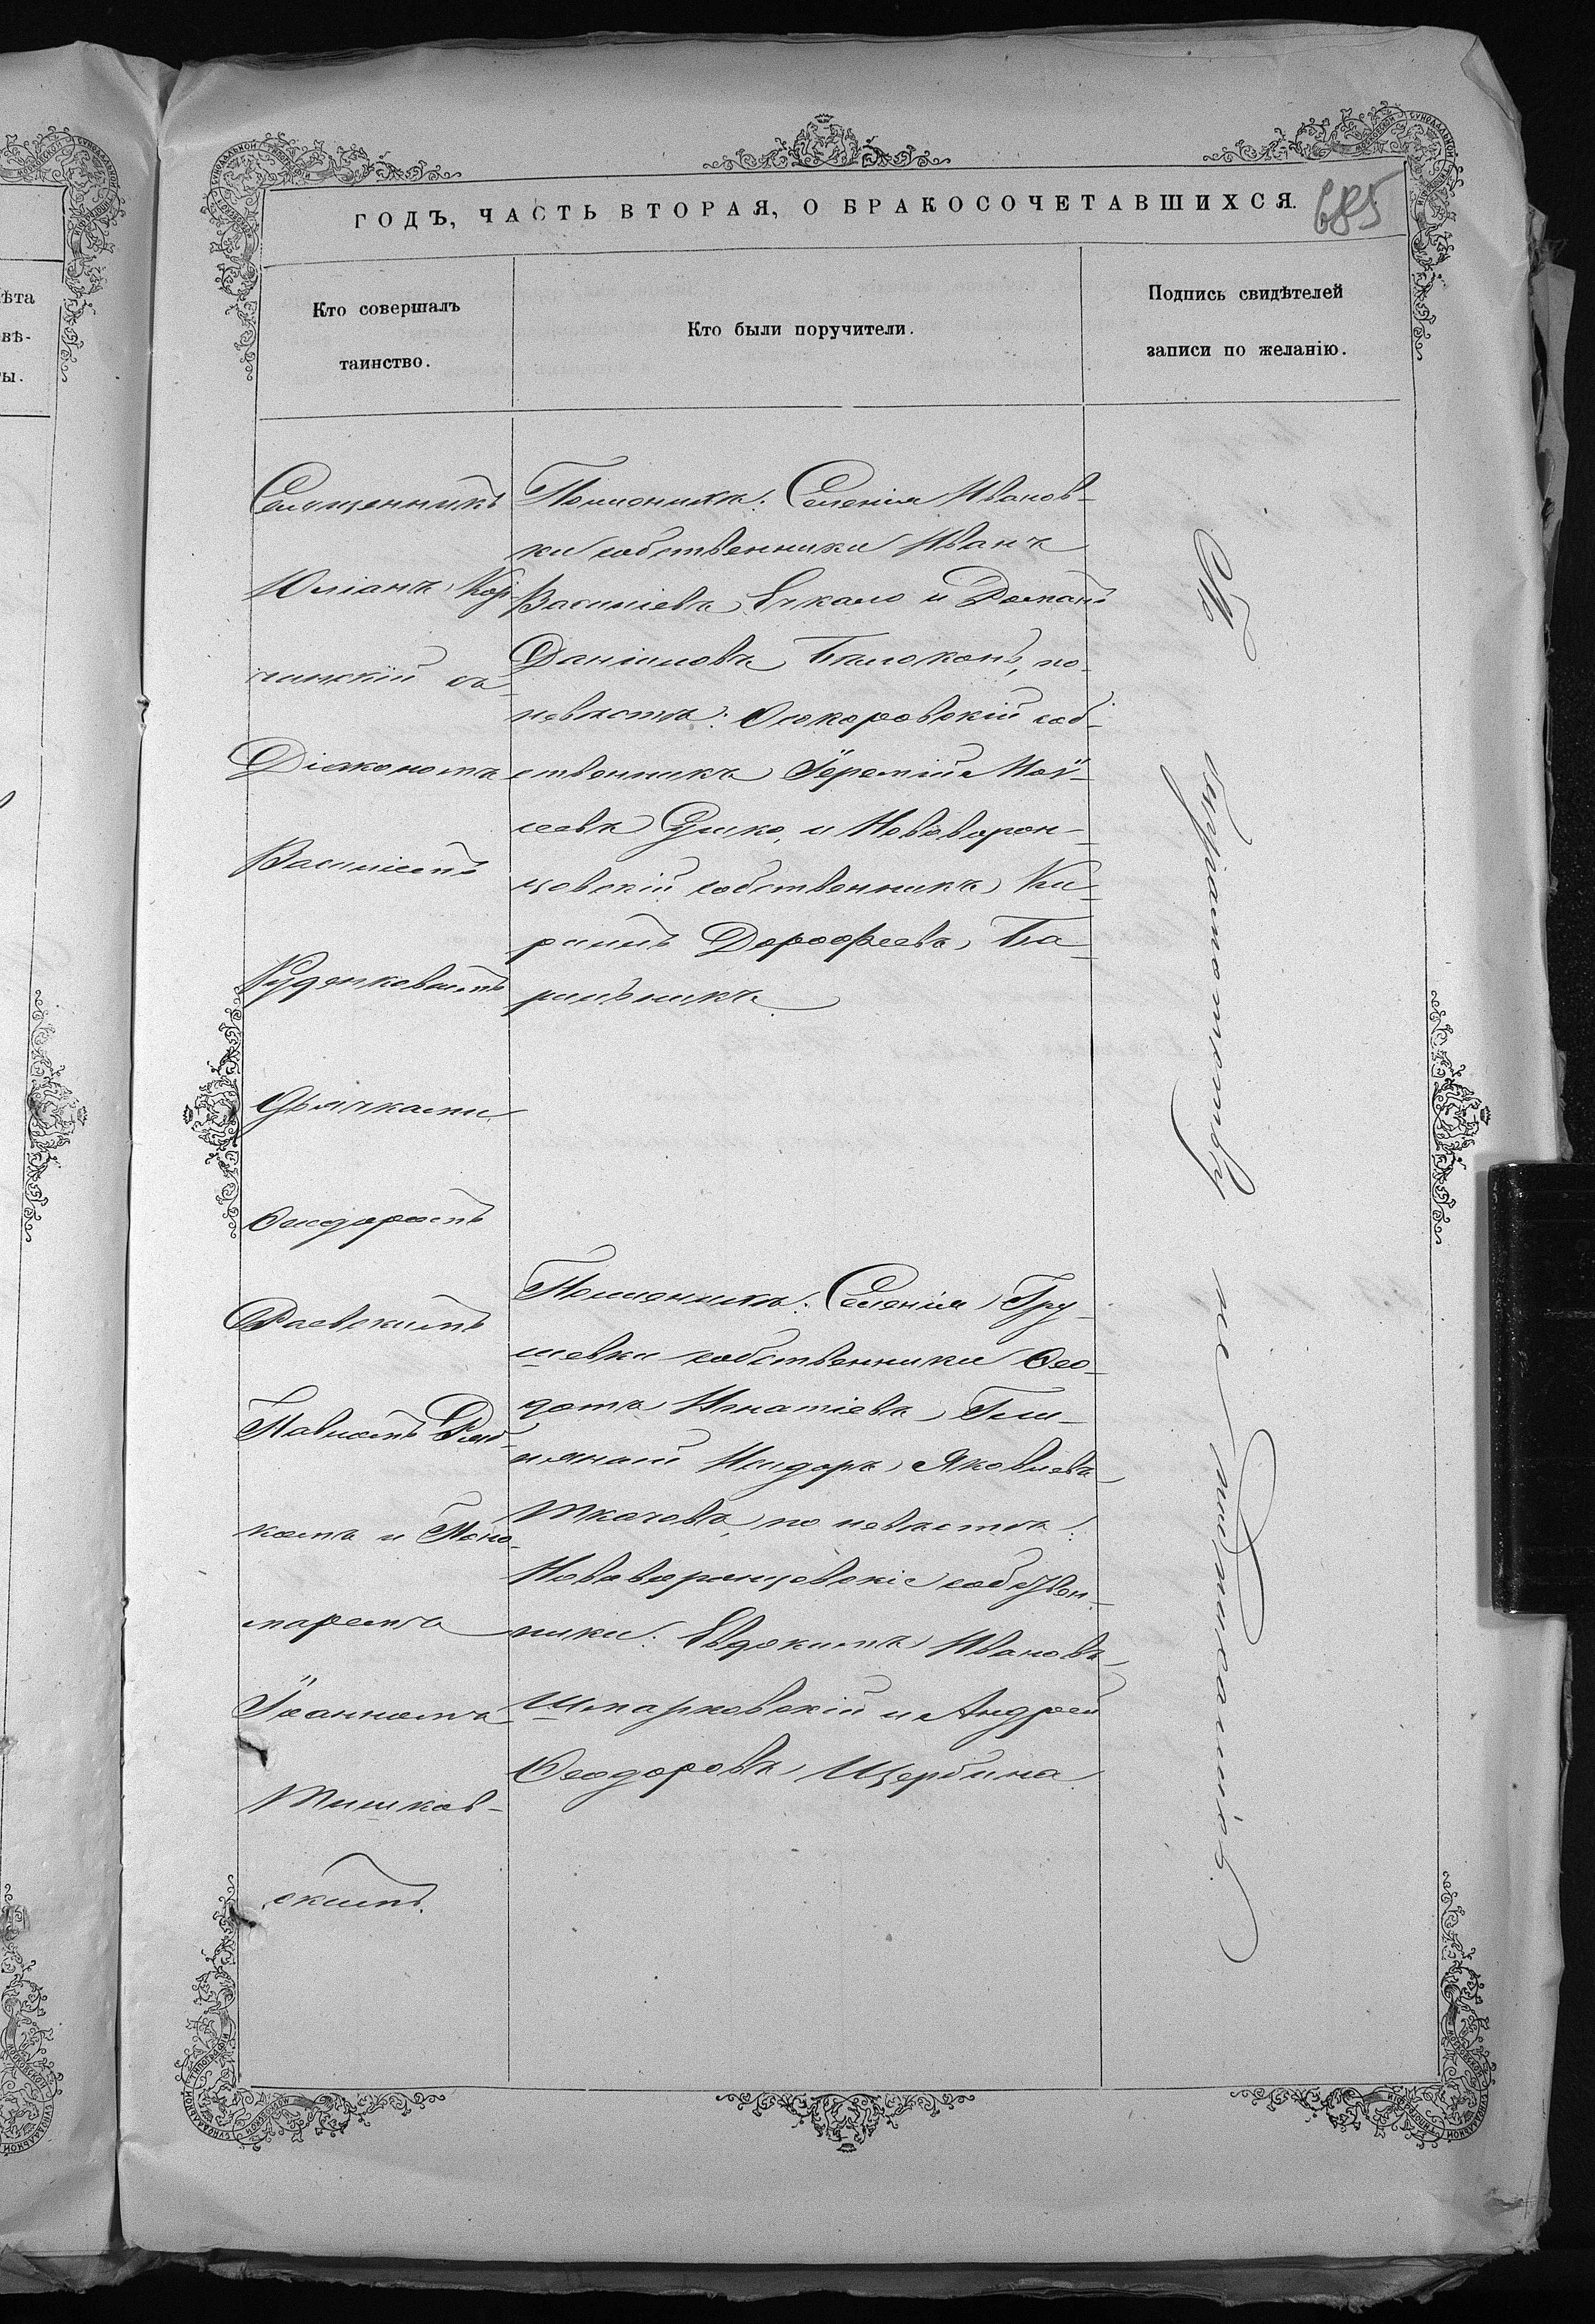 ГОДЪ, ЧАСТЬ ВТОРАЯ, О БРАКОСОЧЕТАВШИХСЯ.
685
Кто совершалъ
таинство.
Кто были поручители.
Подпись свидѣтелей
записи по желанію.
Священникъ
Юліанъ
чинскій съ
Діакономъ
Василіемъ
Руденковымъ
Дьячками
Ѳеодоромъ
Раевскимъ
Павломъ Ряб-
комъ и Поно-
маремъ
Іоанномъ
Тишков-
скимъ.
По женихѣ: Селенія Иванов-
ки собственники Иванъ
Василіевъ и Романъ
Даніиловъ Билоконь, по
невѣстѣ: Осокоровскій соб-
ственникъ Іеремій Мой-
сеевъ Сушко, и Нововорон-
цовскій собственникъ Ки-
риллъ Дорофеевъ
рильникъ
По женихѣ: Селенія Гру-
шевки собственники Ѳео-
дотъ Игнатіевъ
няный Исидоръ Яковлевъ
Ткачовъ, по невѣстѣ:
Нововоронцовскіе собствен-
ники: Евдокимъ Ивановъ
Шмарковскій и Андрей
Ѳеодоровъ Щербина